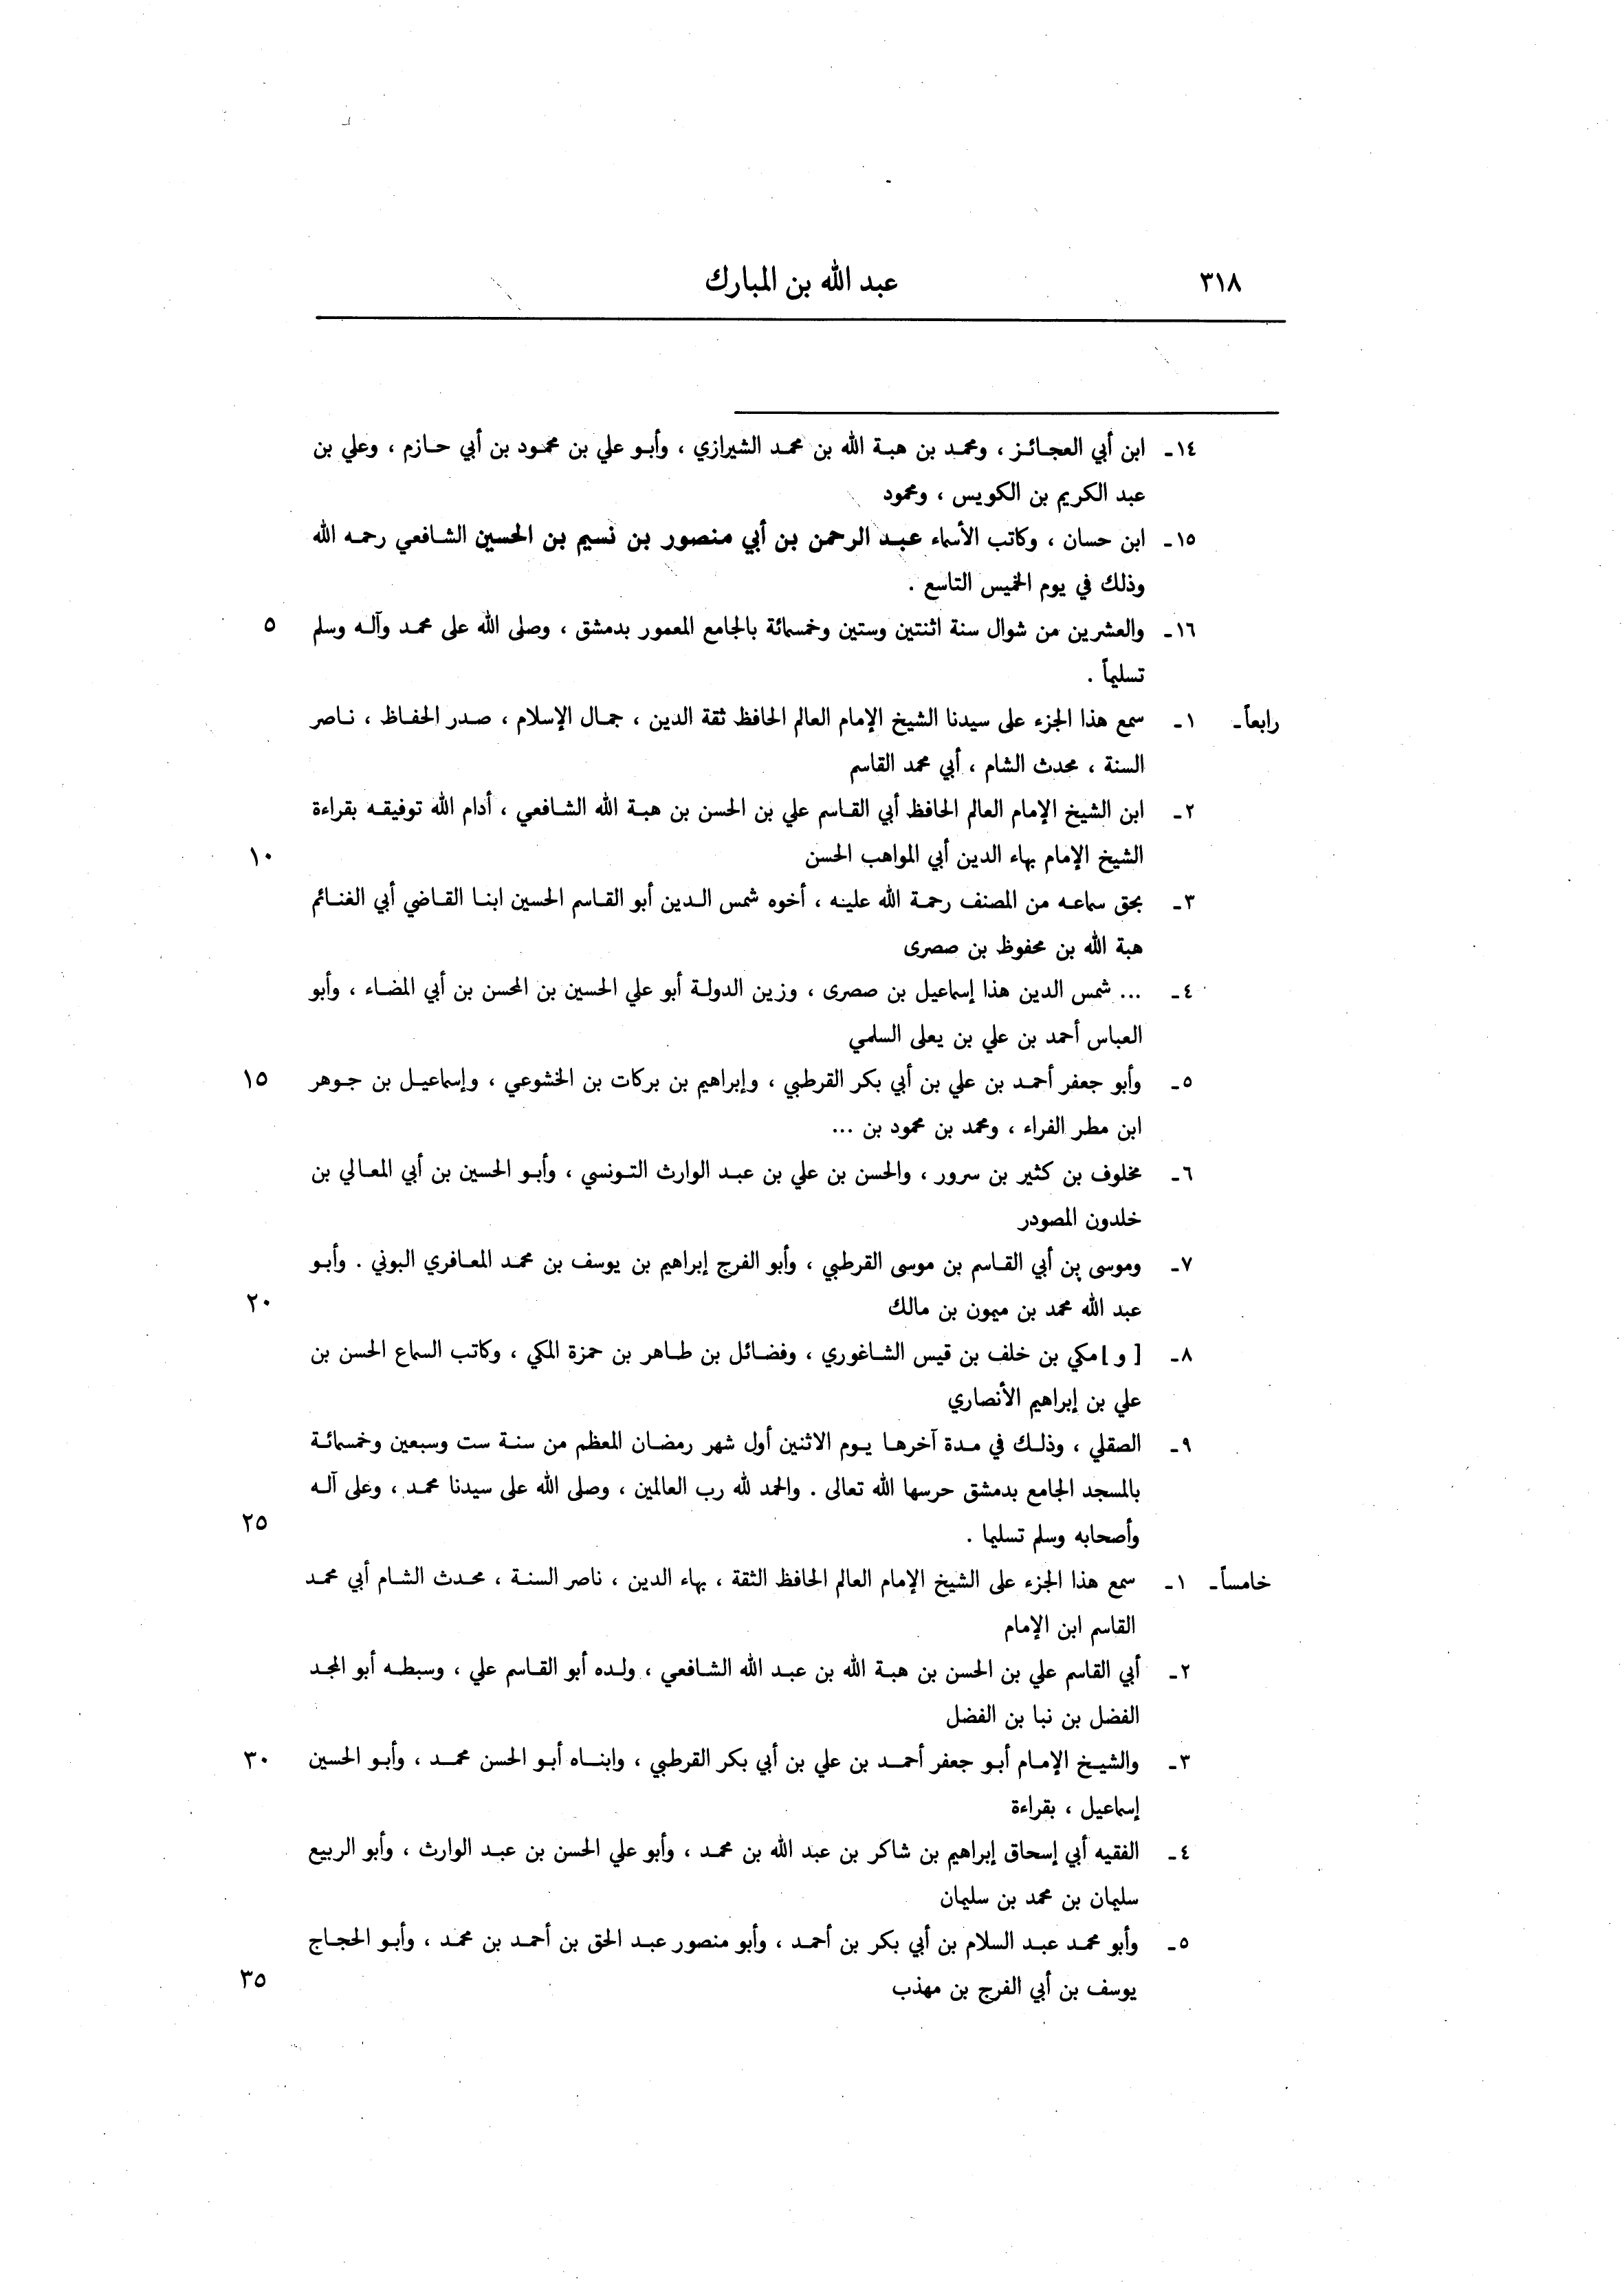 ٣١٨ عبد الله بن المبارك
١٤ـ ابن أبي العجائز ، ومحمد بن هبة الله بن محمد الشيرازي ، وأبو علي بن محمود بن أبي حازم ، وعلي بن
عبد الكريم بن الكويس ، ومحمود
١٥ـ ابن حسان ، وكاتب الأسماء عبد الرحمن بن أبي منصور بن نسيم بن الحسين الشافعي رحمه الله
وذلك في يوم الخميس التاسع .
١٦ـ والعشرين من شوال سنة اثنتين وستين وخمسمائة بالجامع المعمور بدمشق ، وصلى الله على محمد وآله وسلم ٥
تسليماً .
رابعاً ـ ١ـ سمع هذا الجزء على سيدنا الشيخ الإمام العالم الحافظ ثقة الدين ، جمال الإسلام ، صدر الحفاظ ، ناصر
السنة ، محدث الشام ، أبي محمد القاسم
٢ـ ابن الشيخ الإمام العالم الحافظ أبي القاسم علي بن الحسن بن هبة الله الشافعي ، أدام الله توفيقه بقراءة
الشيخ الإمام بهاء الدين أبي المواهب الحسن ١٠
٣ـ بحق سماعه من المصنف رحمة الله عليه ، أخوه شمس الدين أبو القاسم الحسين ابنا القاضي أبي الغنائم
هبة الله بن محفوظ بن صصرى
٤ـ ... شمس الدين هذا إسماعيل بن صصرى ، وزين الدولة أبو علي الحسين بن المحسن بن أبي المضاء ، وأبو
العباس أحمد بن علي بن يعلى السلمي
٥ـ وأبو جعفر أحمد بن علي بن أبي بكر القرطبي ، وإبراهيم بن بركات بن الخشوعي ، وإسماعيل بن جوهر ١٥
ابن مطر الفراء ، ومحمد بن محمود بن ...
٦ـ مخلوف بن كثير بن سرور ، والحسن بن علي بن عبد الوارث التونسي ، وأبو الحسين بن أبي المعالي بن
خلدون المصودر
٧ـ وموسى بن أبي القاسم بن موسى القرطبي ، وأبو الفرج إبراهيم بن يوسف بن محمد المعافري البوني . وأبو
عبد الله محمد بن ميمون بن مالك ٢٠
٨ـ [ و ] مكي بن خلف بن قيس الشاغوري ، وفضائل بن طاهر بن حمزة المكي ، وكاتب السماع الحسن بن
علي بن إبراهيم الأنصاري
٩ـ الصقلي ، وذلك في مدة آخرها يوم الاثنين أول شهر رمضان المعظم من سنة ست وسبعين وخمسمائة
بالمسجد الجامع بدمشق حرسها الله تعالى . والحمد لله رب العالمين ، وصلى الله على سيدنا محمد ، وعلى آله
وأصحابه وسلم تسليما . ٢٥
خامساً ـ ١ـ سمع هذا الجزء على الشيخ الإمام العالم الحافظ الثقة ، بهاء الدين ، ناصر السنة ، محدث الشام أبي محمد
القاسم ابن الإمام
٢ـ أبي القاسم علي بن الحسن بن هبة الله بن عبد الله الشافعي ، ولده أبو القاسم علي ، وسبطه أبو المجد
الفضل بن نبا بن الفضل
٣ـ والشيخ الإمام أبو جعفر أحمد بن علي بن أبي بكر القرطبي ، وابناه أبو الحسن محمد ، وأبو الحسين ٣٠
إسماعيل ، بقراءة
٤ـ الفقيه أبي إسحاق إبراهيم بن شاكر بن عبد الله بن محمد ، وأبو علي الحسن بن عبد الوارث ، وأبو الربيع
سليمان بن محمد بن سليمان
٥ـ وأبو محمد عبد السلام بن أبي بكر بن أحمد ، وأبو منصور عبد الحق بن أحمد بن محمد ، وأبو الحجاج
يوسف بن أبي الفرج بن مهذب ٣٥